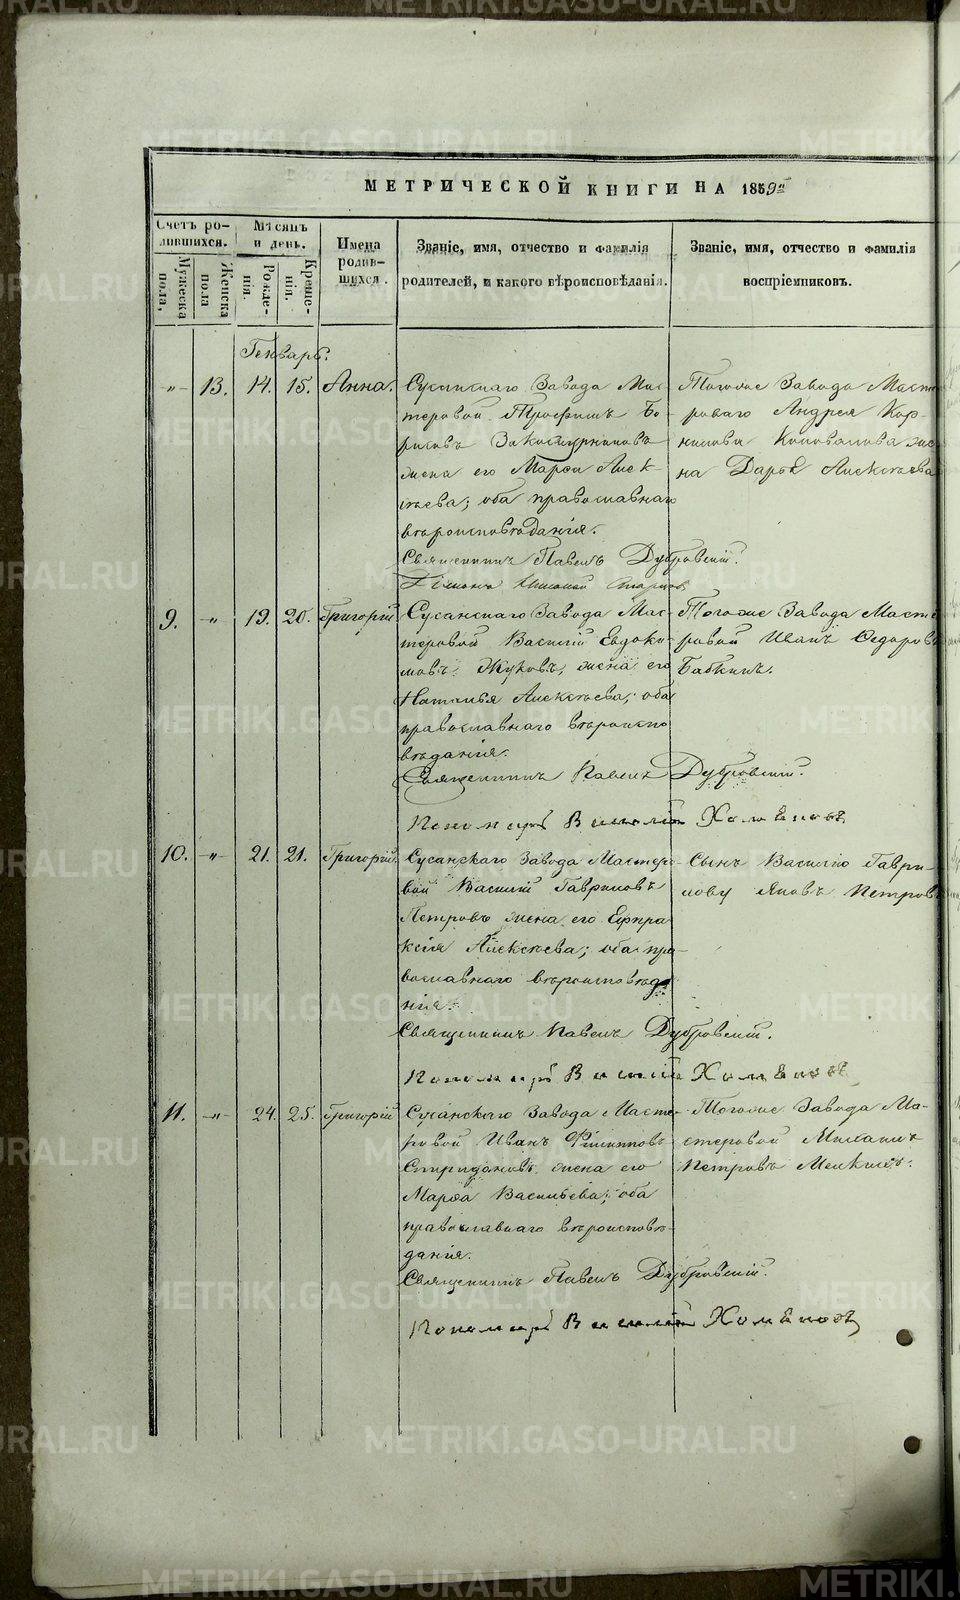 МЕТРИЧЕСКОЙ КНИГИ НА 1859й
Счетъ ро-
дившихся.
Мужеска
пола,
Женска
пола
Мѣсяцъ
и день.
Рожде-
нія.
Креще-
нія.
Имена
родив-
шихся.
Званіе, имя, отчество и фамилія
родителей, и какого вѣроисповѣданія.
Званіе, имя, отчество и фамилія
воспріемниковъ.
Генварь.
-"- 13. 14. 15. Анна.
Сусанскаго Завода Мас-
теровой Трофимъ Бо-
рисовъ
жена его Марѳа Алек-
сѣева; оба православнаго
вѣроисповѣданія.
Священникъ Павелъ Дубровскій.
Тогоже Завода Масте-
роваго Андрея Кор-
нилова Коновалова же-
на Дарья Алексѣева
9. -"- 19. 20. Григорій
Сусанскаго Завода Мас-
теровой Василій Евдоки-
мовъ Жуковъ, жена его
Наталья Алексѣева; оба
православнаго вѣроиспо-
вѣданія.
Священникъ Павелъ Дубровскій.
Пономарь Василій Хомяковъ
Тогоже Завода Масте-
ровой Иванъ Ѳедоровъ
Бабкинъ.
10. -"- 21. 21. Григорій.
Сусанскаго Завода Мастеро-
вой Василій Гавриловъ
Петровъ жена его Евпра-
ксія Алексѣева; оба пра-
вославнаго вѣроисповѣда-
нія.
Священникъ Павелъ Дубровскій.
Пономарь Василій Хомяковъ
Сынъ Василію Гаври-
лову Яковъ Петровъ
11. -"- 24. 25. Григорій
Сусанскаго Завода Масте-
ровой Иванъ Филипповъ
Спиридоновъ жена его
Марѳа Васильева; оба
православнаго вѣроисповѣ-
данія.
Священникъ Павелъ Дубровскій.
Пономарь Василій Хомяковъ
Тогоже Завода Ма-
стеровой Михаилъ
Петровъ
METRIKI.GASO-URAL.RU